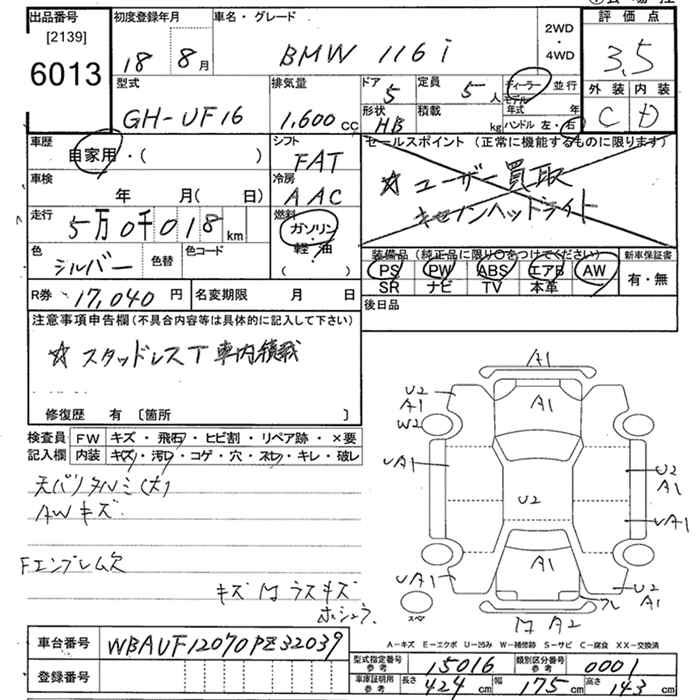 出品番号 初度登録年月 車名・グレード 評価点
[2139]
6013 18 8月 BMW 116i 2WD・4WD 3.5
型式 排気量 ドア 5 定員 5人 ディーラー 並行
外装 内装
GH-UF16 1,600cc 形状 HB 積載 kg モデル年式 年
ハンドル 左・右 C D
車歴 自家用・( ) シフト FAT セールスポイント(正常に機能するものに限ります)
車検 年 月(日) 冷房 AAC ☆ユーザー買取
キセノンヘッドライト
走行 5万0千018km 燃料 ガソリン・軽油( )
色 シルバー 色替 色コード 装備品(純正品に限り○をつけてください) 新車保証書
PS PW ABS エアB AW 有・無
SR ナビ TV 本革
R券 17,040円 名変期限 月 日 後日品
注意事項申告欄(不具合内容等は具体的に記入して下さい)
☆スタッドレスT車内積載
修復歴 有〔箇所 〕
検査員記入欄 FW キズ・飛石・ヒビ割・リペア跡・×要
内装 キズ・汚・コゲ・穴・ネジ・キレ・破レ
天バリタルミ(大)
AWキズ
Fエンブレム欠
キズ M ラスキズ
ホシュラ
A1
U2
A1
A1
W2
UA1
U2
A1
U2
UA1
A1
UA1
U2
A1
フレ
スペア
A2
A-キズ E-エクボ U-凹み W-補修跡 S-サビ C-腐食 XX-交換済
車台番号 WBAUF12070PZ32039
型式指定番号 参考 15016 類別区分番号 参考 0001
登録番号 車庫証明用 参考 長さ 424cm 幅 175cm 高さ 143cm